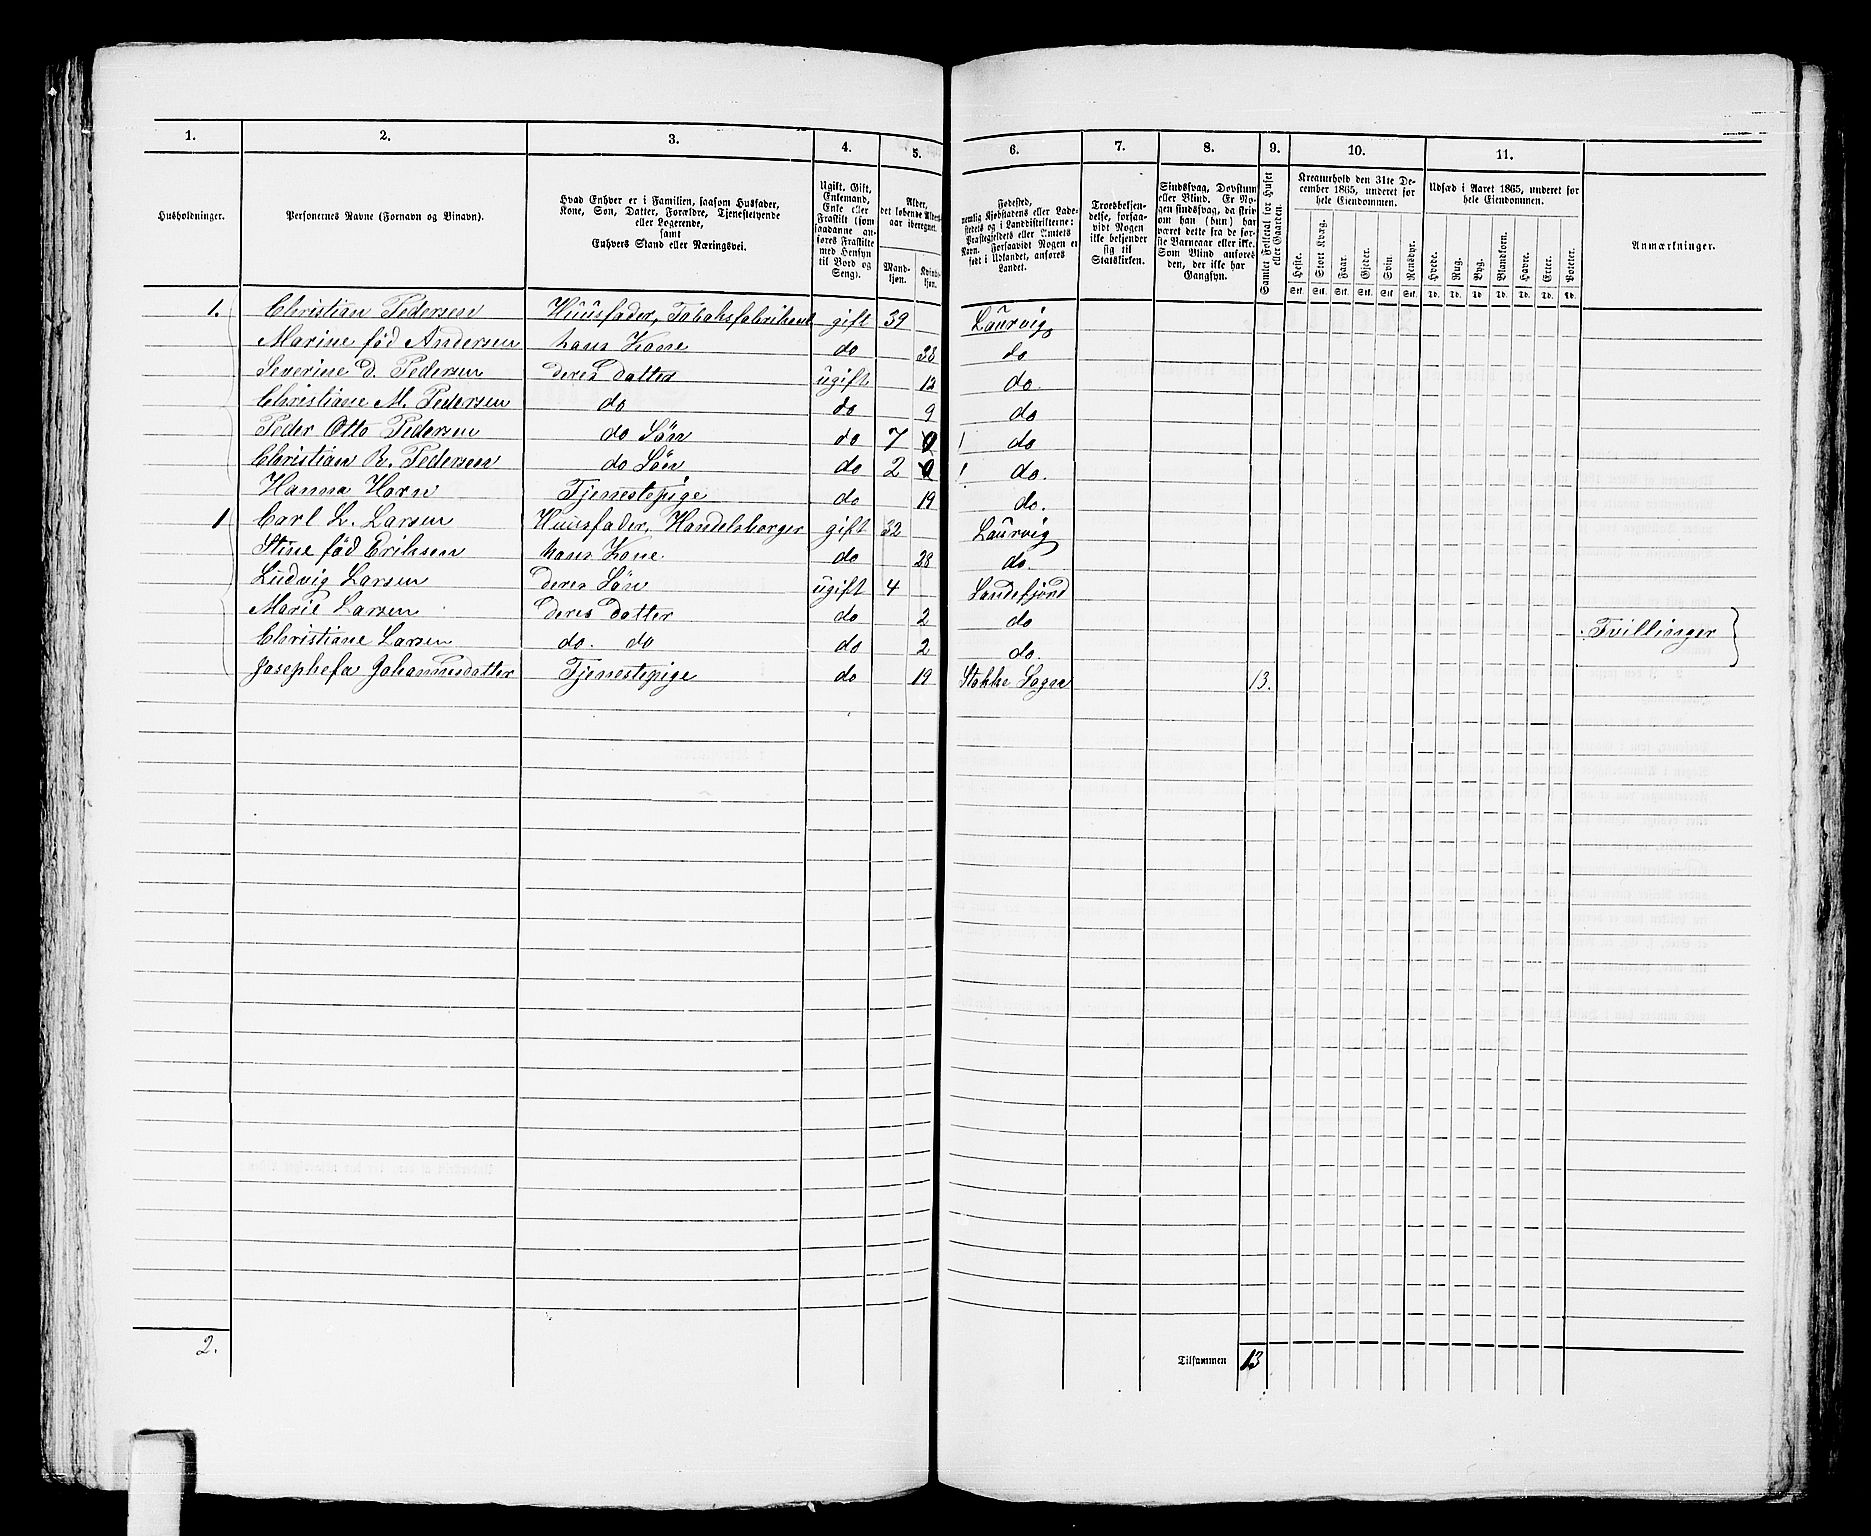 1. 2. 3. 4. 5. 6. 7. 8. 9. 10. 11.
Husholdninger.
Personernes Navne (Fornavn og Binavn).
Hvad Enhver er i Familien, saasom Husfader,
Kone, Søn, Datter, Forældre, Tjenestetyende
eller Logerende,
samt
Enhvers Stand eller Næringsvei.
Ugift, Gift,
Enkemand,
Enke eller
Fraskilt (som
saadanne an-
føres Fraskilte
med Hensyn
til Bord og
Seng).
Alder,
det løbende Alders-
aar iberegnet.
Mand-
kjøn.
Kvind-
kjøn.
Fødested,
nemlig Kjøbstadens eller Lade-
stedets og i Landdistrikterne:
Præstegjeldets eller Amtets
Navn. Forsaavidt Nogen er
født i Udlandet, anføres
Landet.
Troesbekjen-
delse, forsaa-
vidt Nogen
ikke bekjender
sig til
Statskirken.
Sindssvag, Døvstum
eller Blind. Er No-
gen sindssvag, da skriv
om han (hun) har
været dette fra de før-
ste Barneaar eller ikke.
Som Blind anføres
den, der ikke har
Gangsyn.
Samlet Folketal for Huset
eller Gaarden.
Kreaturhold den 31te De-
cember 1865, underet for
hele Eiendommen.
Heste. Stort Kvæg. Faar. Gjeder. Svin. Rensdyr.
Stk. Stk. Stk. Stk. Stk. Stk.
Udsæd i Aaret 1865, underet for
hele Eiendommen.
Hvede. Rug. Byg. Blandkorn. Havre. Erter. Poteter.
Td. Td. Td. Td. Td. Td. Td.
Anmærkninger.
1. Christian Pedersen Huusfader, Tobaksfabrikant gift 39 Laurvig
Marine fød Andersen hans Kone do 38 do
Severine D. Pedersen deres datter ugift 12 do.
Christiane M. Pedersen do do 9 do
Peder Otto Pedersen do Sön do 7 do
Christian R. Pedersen do Sön do 2 do.
Hanna Horn Tjenestepige do 19 do.
1 Carl L. Larsen Huusfader, Handelsborger gift 32 Laurvig
Stine fød Eriksen hans Kone. do 28 do.
Ludvig Larsen deres Sön ugift 4 Sandefjord
Marie Larsen deres datter do 2 do
Christiane Larsen do. do do 2 do. Tvillinger
Josephefa Johannesdatter Tjenestepige do 19 Stokke Sogn 13.
2. Tilsammen 13